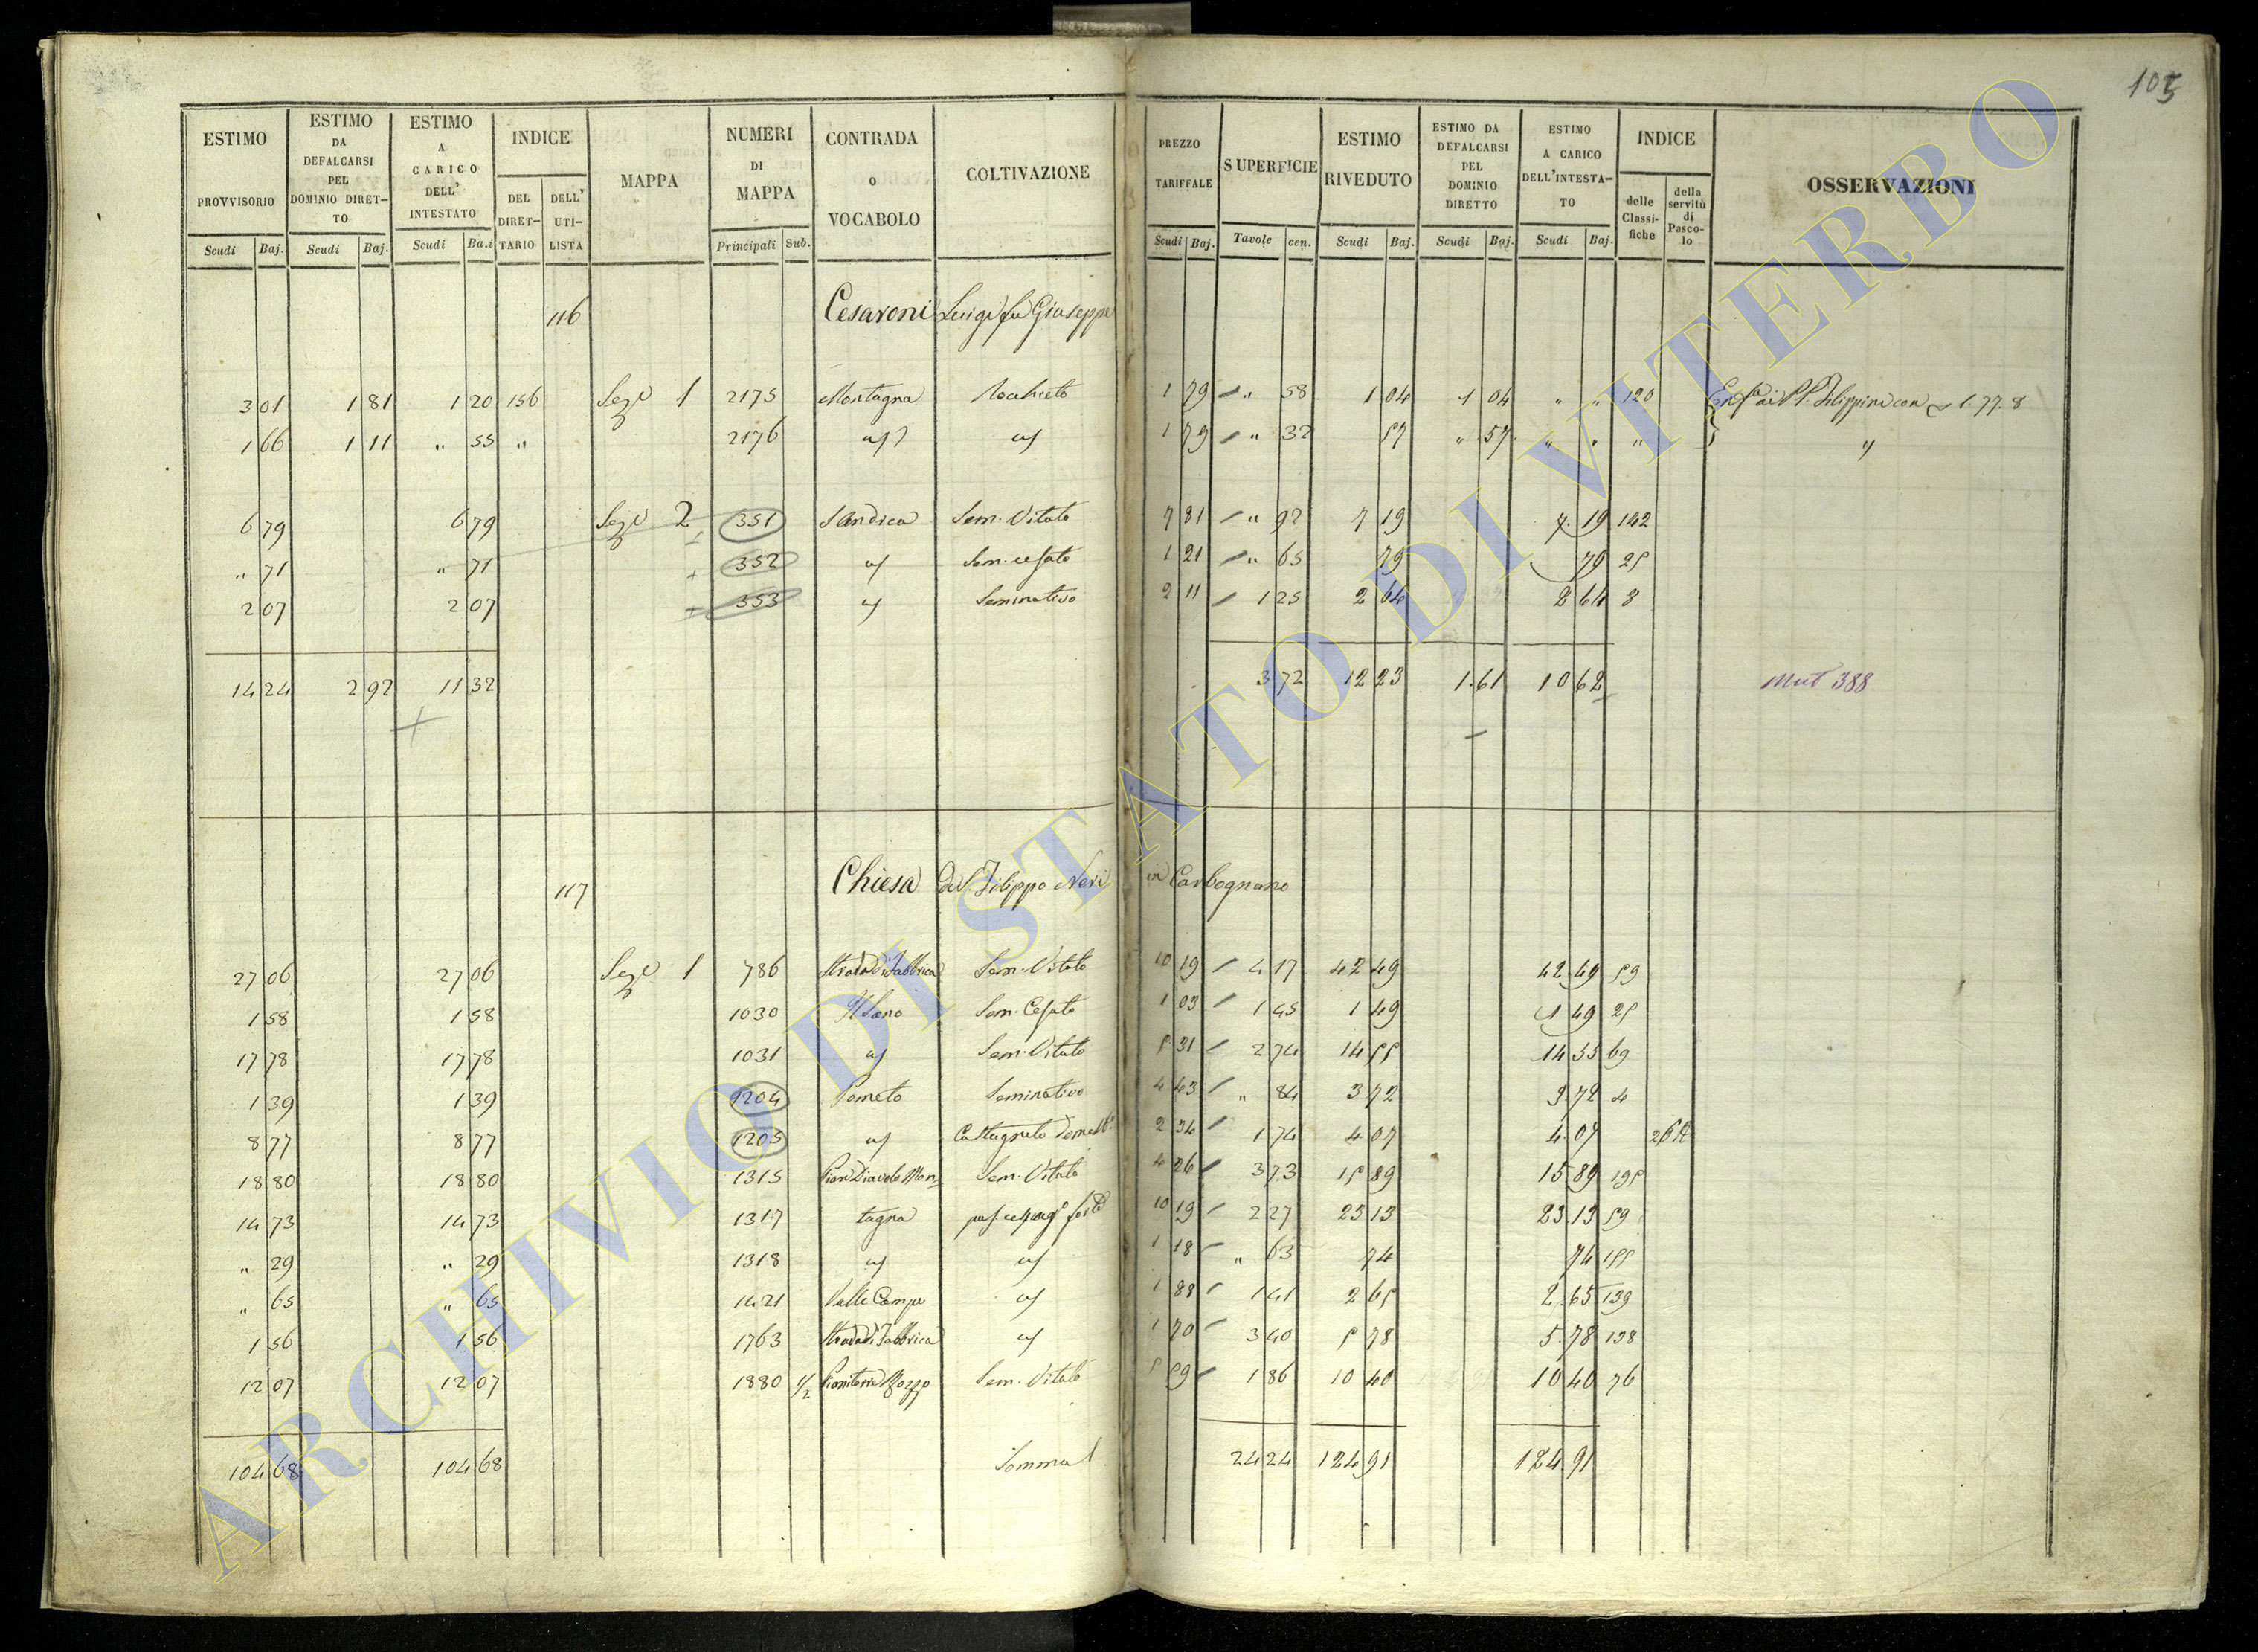 105
ESTIMO PROVVISORIO Scudi Baj.
ESTIMO DA DEFALCARSI PEL DOMINIO DIRET-TO Scudi Baj.
ESTIMO A CARICO DELL' INTESTATO Scudi Ba.i
INDICE DEL DIRET-TARIO DELL' UTI-LISTA
MAPPA
NUMERI DI MAPPA Principali Sub.
CONTRADA O VOCABOLO
COLTIVAZIONE
PREZZO TARIFFALE Scudi Baj.
SUPERFICIE Tavole cen.
ESTIMO RIVEDUTO Scudi Baj.
ESTIMO DA DEFALCARSI PEL DOMINIO DIRETTO Scudi Baj.
ESTIMO A CARICO DELL'INTESTA-TO Scudi Baj.
INDICE delle Classi-fiche della servitù di Pasco-lo
OSSERVAZIONI
116 Cesaroni Luigi fu Giuseppe
3 01 1 81 1 20 156 Seze 1 2175 Montagna 1 79 " 58 1 04 1 04 " " 120 ai PP. Filippini con 1.77.8
1 66 1 11 " 55 " 2176 1 79 " 32 57 " 57 " " "
6 79 6 79 Seze 2 351 S Andrea Sem. Vitato 7 81 " 92 7 19 7 19 142
" 71 " 71 352 Sem. cesato 1 21 " 65 79 79 25
2 07 2 07 353 Seminativo 2 11 1 25 2 64 2 64 8
14 24 2 92 11 32 3 72 12 23 1.61 10 62 Mut 388
117 Chiesa di S. Filippo Neri in Carbognano
27 06 27 06 Seze 1 786 Strada di Fabbrica Sem. Vitato 10 19 4 17 42 49 42 49 59
1 58 1 58 1030 Sem. Cesato 1 03 1 45 1 49 1 49 25
17 78 17 78 1031 Sem. Vitato 5 31 2 74 14 55 14 55 69
1 39 1 39 1204 Pometo Seminativo 4 43 " 84 3 72 3 72 4
8 77 8 77 1205 Castagneto 2 34 1 74 4 07 4 07
18 80 18 80 1315 Pian Diavolo Mon= Sem. Vitato 4 26 3 73 15 89 15 89 195
14 73 14 73 1317 tagna 10 19 2 27 23 13 23 13 59
" 29 " 29 1318 1 18 " 63 74 74 155
" 65 " 65 1421 Valle Campe 1 88 1 41 2 65 2.65 139
1 56 1 56 1763 Strada di Fabbrica 1 70 3 40 5 78 5.78 138
12 07 12 07 1880 1/2 Sem. Vitato 5 59 1 86 10 40 10 40 76
104 68 104 68 Somma 24 24 124 91 124.91
ARCHIVIO DI STATO DI VITERBO